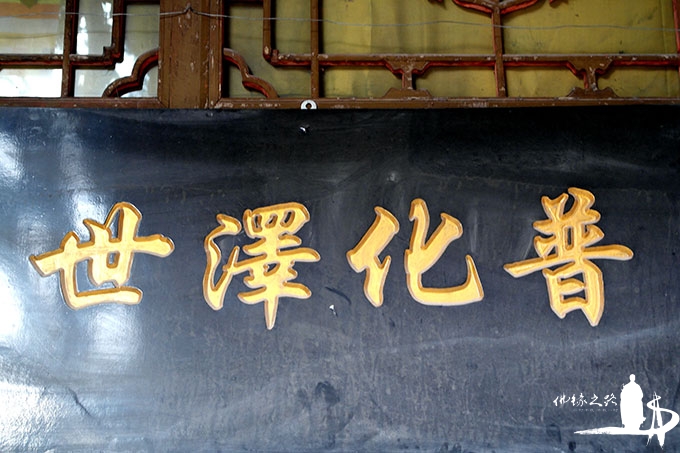 普化澤世
佛缘之路